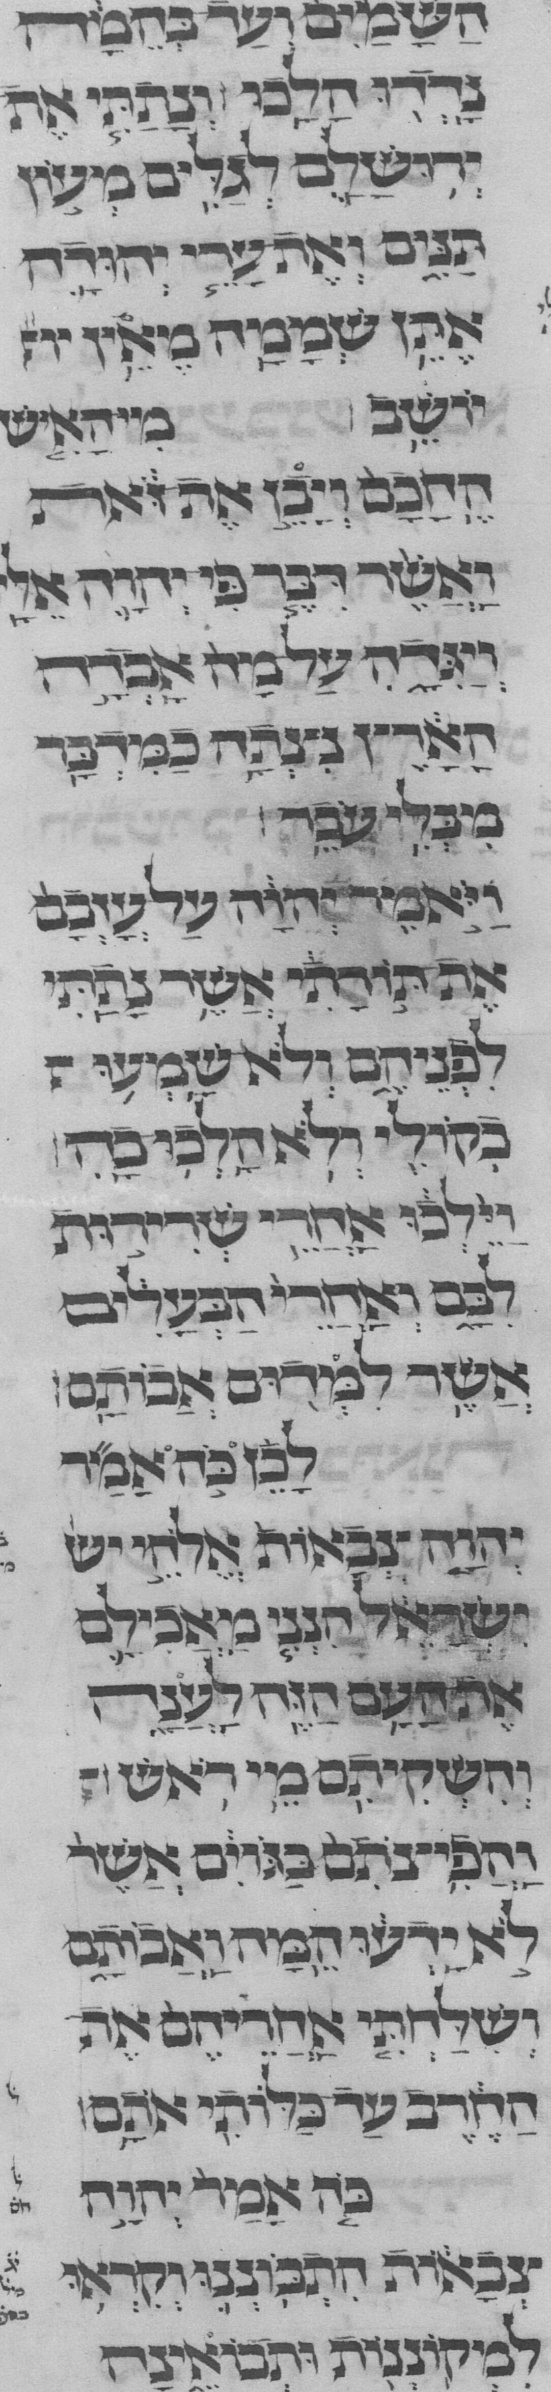 הַשָּׁמַיִם וְעַד בְּהֵמָה
נָדְדוּ הָלָכוּ וְנָתַתִּי אֶת
יְרוּשָׁלַ͏ִם לְגַלִּים מְעוֹן
תַּנִּים וְאֶת עָרֵי יְהוּדָה
אֶתֵּן שְׁמָמָה מֵאֵין יו
יוֹשֵׁב מִי הָאִישׁ
הֶחָכָם וְיָבֵן אֶת זֹאת
וַאֲשֶׁר דִּבֶּר פִּי יְהוָה אֵלָי
וְיַגִּדָהּ עַל מָה אָבְדָה
הָאָרֶץ נִצְּתָה כַמִּדְבָּר
מִבְּלִי עֹבֵר
וַיֹּאמֶר יְהוָה עַל עָזְבָם
אֶת תּוֹרָתִי אֲשֶׁר נָתַתִּי
לִפְנֵיהֶם וְלֹא שָׁמְעוּ
בְקוֹלִי וְלֹא הָלְכוּ בָהּ
וַיֵּלְכוּ אַחֲרֵי שְׁרִירוּת
לִבָּם וְאַחֲרֵי הַבְּעָלִים
אֲשֶׁר לִמְּדוּם אֲבוֹתָם
לָכֵן כֹּה אָמַר
יְהוָה צְבָאוֹת אֱלֹהֵי יש
יִשְׂרָאֵל הִנְנִי מַאֲכִילָם
אֶת הָעָם הַזֶּה לַעֲנָה
וְהִשְׁקִיתִם מֵי רֹאשׁ
וַהֲפִיצוֹתִם בַּגּוֹיִם אֲשֶׁר
לֹא יָדְעוּ הֵמָּה וַאֲבוֹתָם
וְשִׁלַּחְתִּי אַחֲרֵיהֶם אֶת
הַחֶרֶב עַד כַּלּוֹתִי אֹתָם
כֹּה אָמַר יְהוָה
צְבָאוֹת הִתְבּוֹנְנוּ וְקִרְאוּ
לַמְקוֹנְנוֹת וּתְבוֹאֶינָה